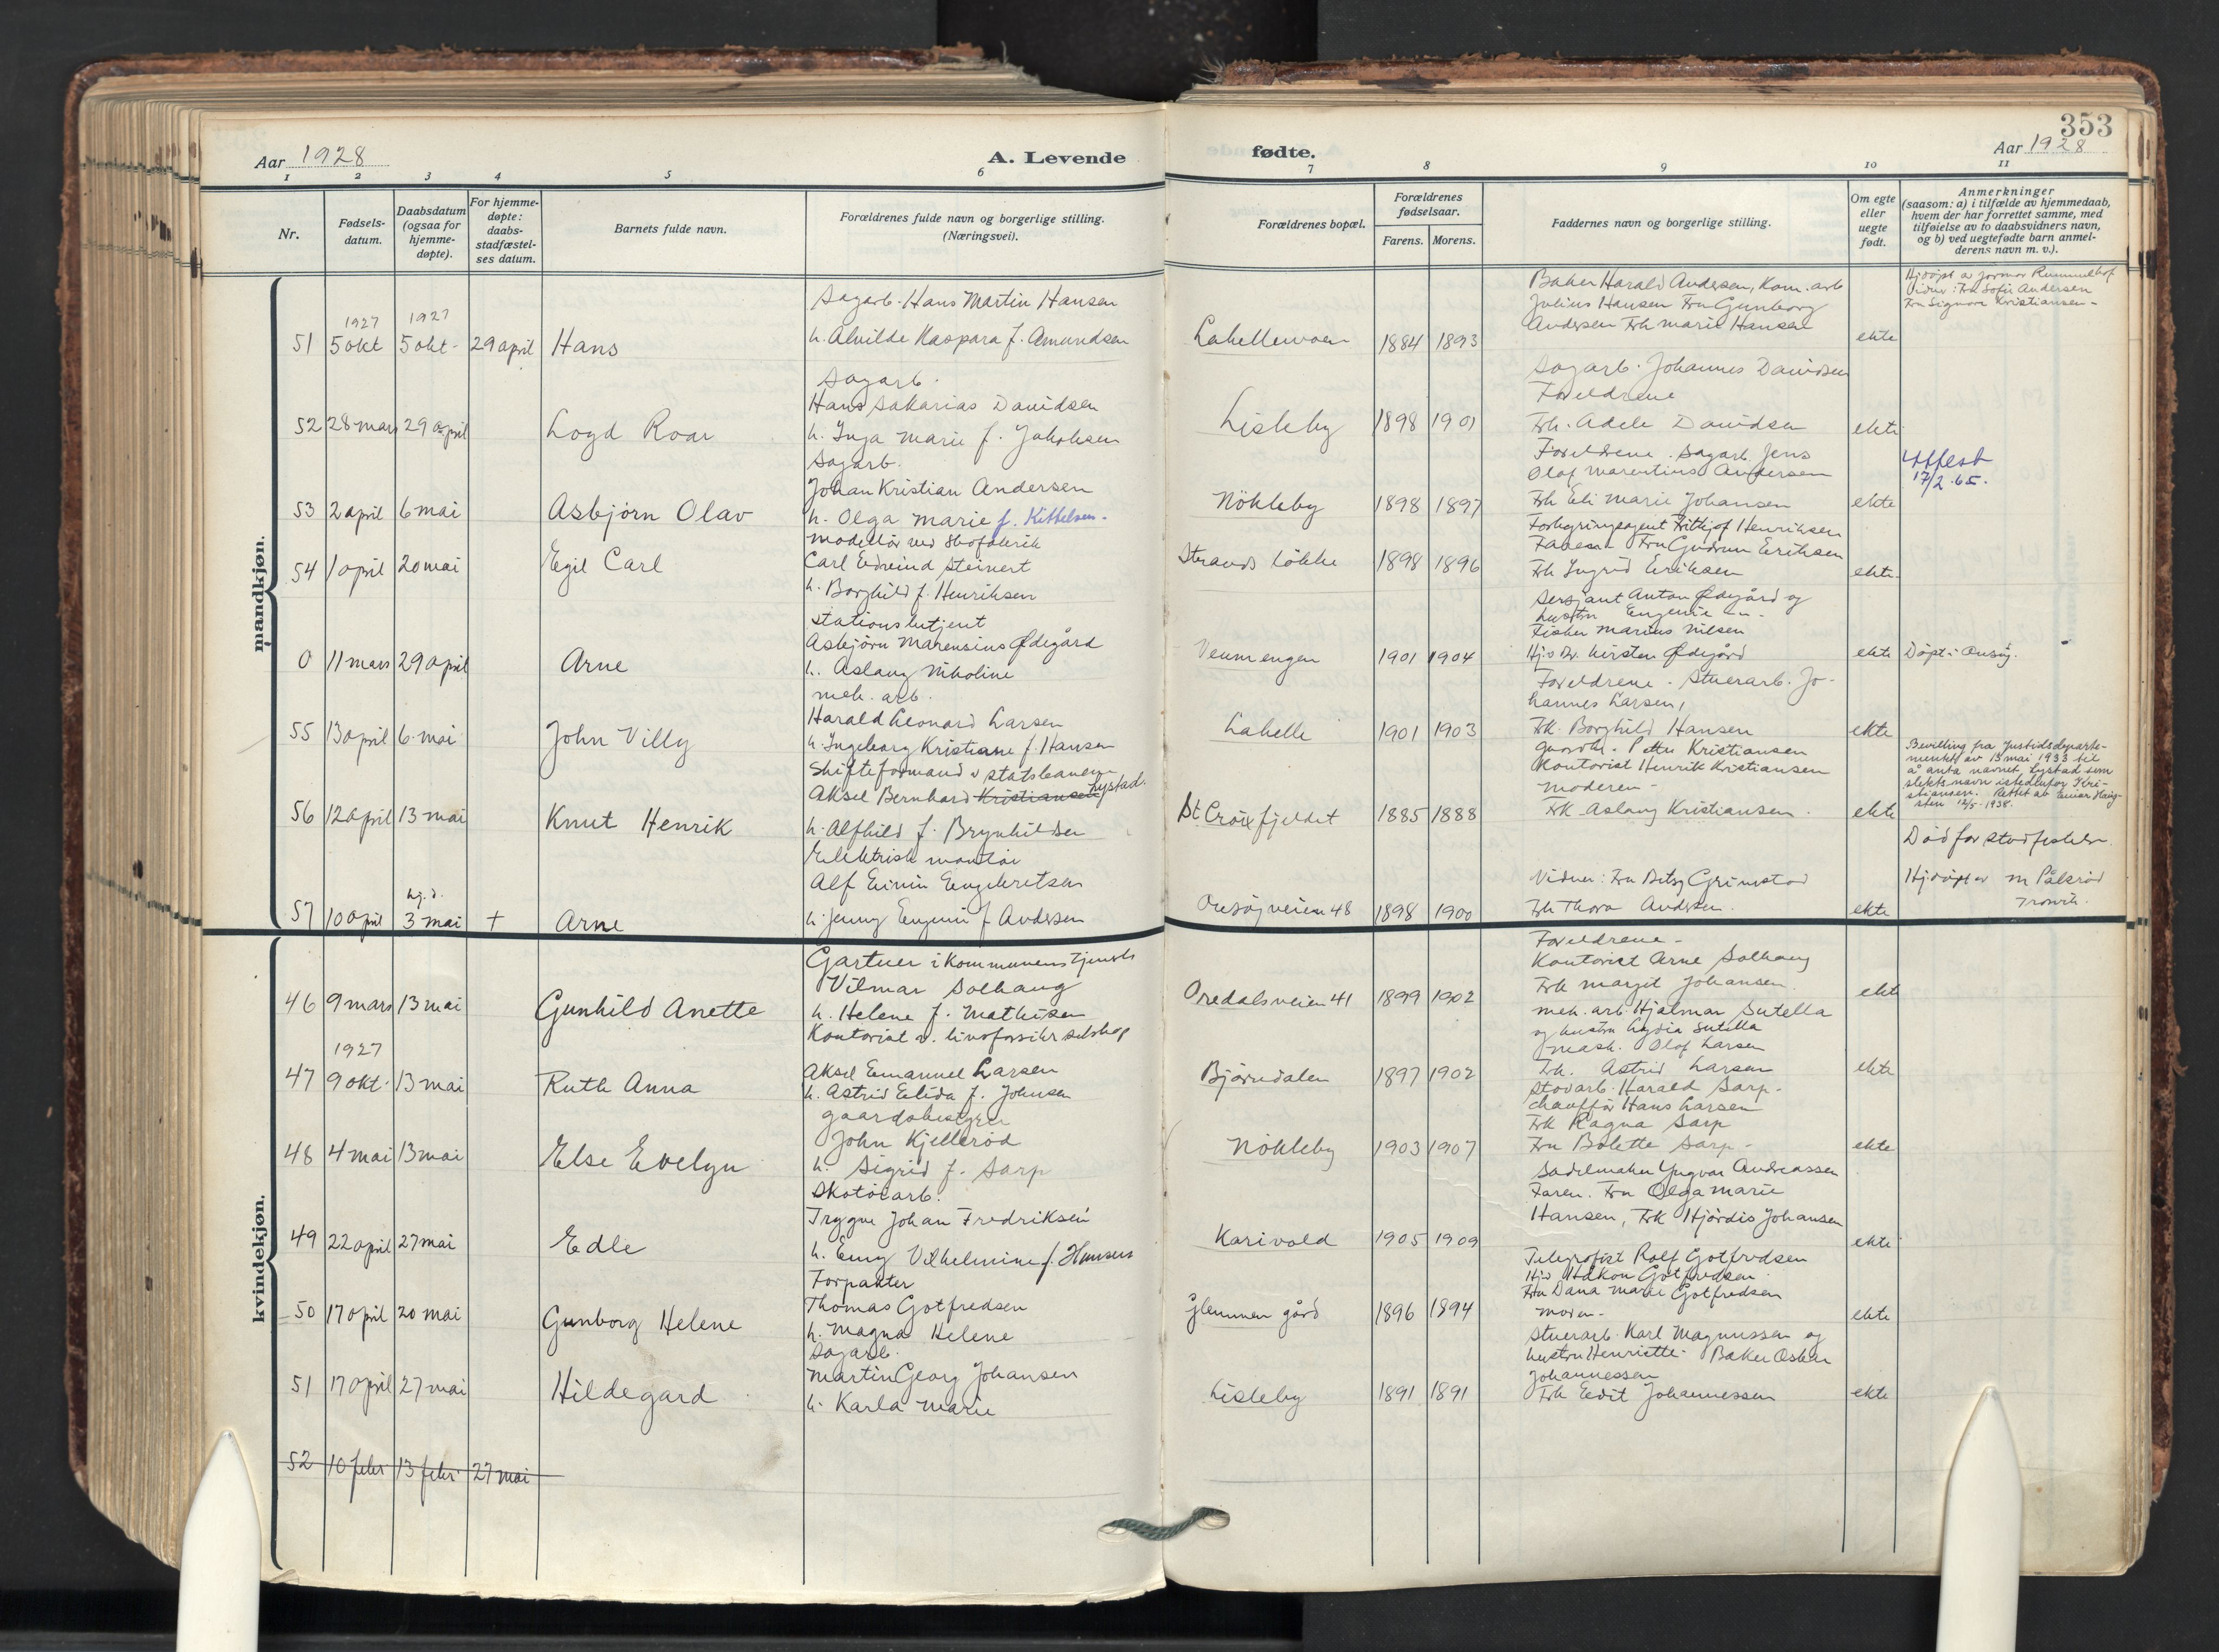 353
Aar 1928
A. Levende
fødte.
Aar 1928
1 2 3 4 5 6 7 8 9 10 11
Nr.
Fødsels-
datum.
Daabsdatum
(ogsaa for
hjemme-
døpte).
For hjemme-
døpte:
daabs-
stadfæstel-
ses datum.
Barnets fulde navn.
Forældrenes fulde navn og borgerlige stilling.
(Næringsvei).
Forældrenes bopæl.
Forældrenes
fødselsaar.
Farens. Morens.
Faddernes navn og borgerlige stilling.
Om egte
eller
uegte
født.
Anmerkninger
(saasom: a) i tilfælde av hjemmedaab,
hvem der har forrettet samme, med
tilføielse av to daabsvidners navn,
og b) ved uegtefødte barn anmel-
derens navn m. v.).
mandkjøn.
51
1927
5 okt
1927
5 okt-
29 april
Hans
Sagarb. Hans Martin Hansen
h. Alvilde Kaspara f. Amundsen
1884 1893
Baker Harald Andersen, Kom. arb
Julius Hansen Fru Gunborg
Andersen Frk Marie Hansen
ekte
Hjdøpt av jormor Rummelhof
Vidner: Fru Sofie Andersen
Fru Signora Kristiansen -
52 28 mars 29 april
Loyd Roar
Sagarb.
Hans Sakarias Davidsen
h. Inga Marie f. Jakobsen
Lisleby
1898 1901
Sagarb. Johannes Davidsen
Foreldrene
Frk. Adele Davidsen
ekte
53 2 april 6 mai
Asbjørn Olav
Sagarb.
Johan Kristian Andersen
h. Olga Marie f. Kittelsen.
Nökleby
1898 1897
Foreldrene. Sagarb. Jens
Olaf Marentius Andersen
Frk Eli Marie Johansen
ekte
Attest
17/2.65.
54 1 april 20 mai
Egil Carl
Modellör ved Skofabrik
Carl Edveind Steinert
h. Borghild f. Henriksen
Strands lökke
1898 1896
Forsikringsagent Fritjof Henriksen
Faren Fru Gudrun Eriksen
Frk Ingrid Eriksen
ekte
0 11 mars 29 april
Arne
Stationsbetjent
Asbjörn Marensius Ødegård
h. Aslaug Nikoline
Veumengen
1901 1904
Sersjant Anton Ødegård og
hustru Eugenie - " -
Fisker Marius Nilsen
Hj.v Dr. Kirsten Ødegård
ekte
Døpt i Onsøy.
55 13 april 6 mai
John Villy
mek. arb.
Harald Leonard Larsen
h. Ingeborg Kristiane f. Hansen
Labelle
1901 1903
Foreldrene - Stuerarb. Jo-
hannes Larsen,
Frk. Borghild Hansen
ekte
56 12 april 13 mai
Knut Henrik
Skifteformand v statsbanen
Aksel Bernhard Kristiansen Lystad.
h. Alfhild f. Brynhildsen
St Croixfjeldet
1885 1888
Gaardbr. Petter Kristiansen
Kontorist Henrik Kristiansen
Moderen -
Frk Aslaug Kristiansen.
ekte
Bevilling fra Justisdeparte-
mentet av 13 mai 1933 til
å anta navnet Lystad som
slektsnavn istedenfor Kri-
stiansen. Rettet av Einar Haug-
sten 12/5-1938.
57 10 april
hj.d.
3 mai
+
Arne
Elektrisk montör
Alf Eivin Engebretsen
h. Jenny Eugenie f Andersen
Onsöyveien 48
1898 1900
Vidner: Fru Betsy Grimstad
Frk Thora Andersen.
ekte
Död för stadfestelse.
Hj.döpt av M Pålsröd
kvindekjøn.
46 9 mars 13 mai
Gunhild Anette
Gartner i kommunens tjeneste
Vilmar Solhaug
h. Helene f. Mathisen
Oredalsveien 41
1899 1902
Foreldrene -
Kontorist Arne Solhaug
Frk Margit Johansen.
ekte
47
1927
9 okt. 13 mai
Ruth Anna
Kontorist v. livsforsikr selskap
Aksel Emanuel Larsen
h. Astrid Elida f. Johnsen
Björndalen
1897 1902
mek. arb. Hjalmar Sutella
og hustru Lydia Sutella
Mask. Olaf Larsen
Frk. Astrid Larsen
ekte
48 4 mai 13 mai
Else Evelyn
gaardsbestyrer
John Kjelleröd
h. Sigrid f. Sarp
Nökleby
1903 1907
Stovarb. Harald Sarp.
Chaufför Hans Larsen
Frk Ragna Sarp
Fru Bolette Sarp -
ekte
49 22 april 27 mai
Edle
Skotöiarb.
Trygve Johan Fredriksen
h. Emy Vilhelmine f. Hansen
Karivold
1905 1909
Sadelmaker Yngvar Andreassen
Faren. Fru Olga Marie
Hansen, Frk Hjördis Johansen
ekte
50 17 april 20 mai
Gunborg Helene
Forpakter
Thomas Gotfredsen
h. Magna Helene
Glemmen gård
1896 1894
Telegrafist Rolf Gotfredsen
Hjv Håkon Gotfredsen.
Fru Dana Marie Gotfredsen
Moren -
ekte
51 17 april 27 mai
Hildegard
Sagarb.
Martin Georg Johansen
h. Karla Marie
Lisleby
1891 1891
Stuerarb. Karl Magnussen og
hustru Henriette. Baker Oskar
Johannessen
Frk Edit Johannessen
ekte
52 10 febr 13 febr 27 mai